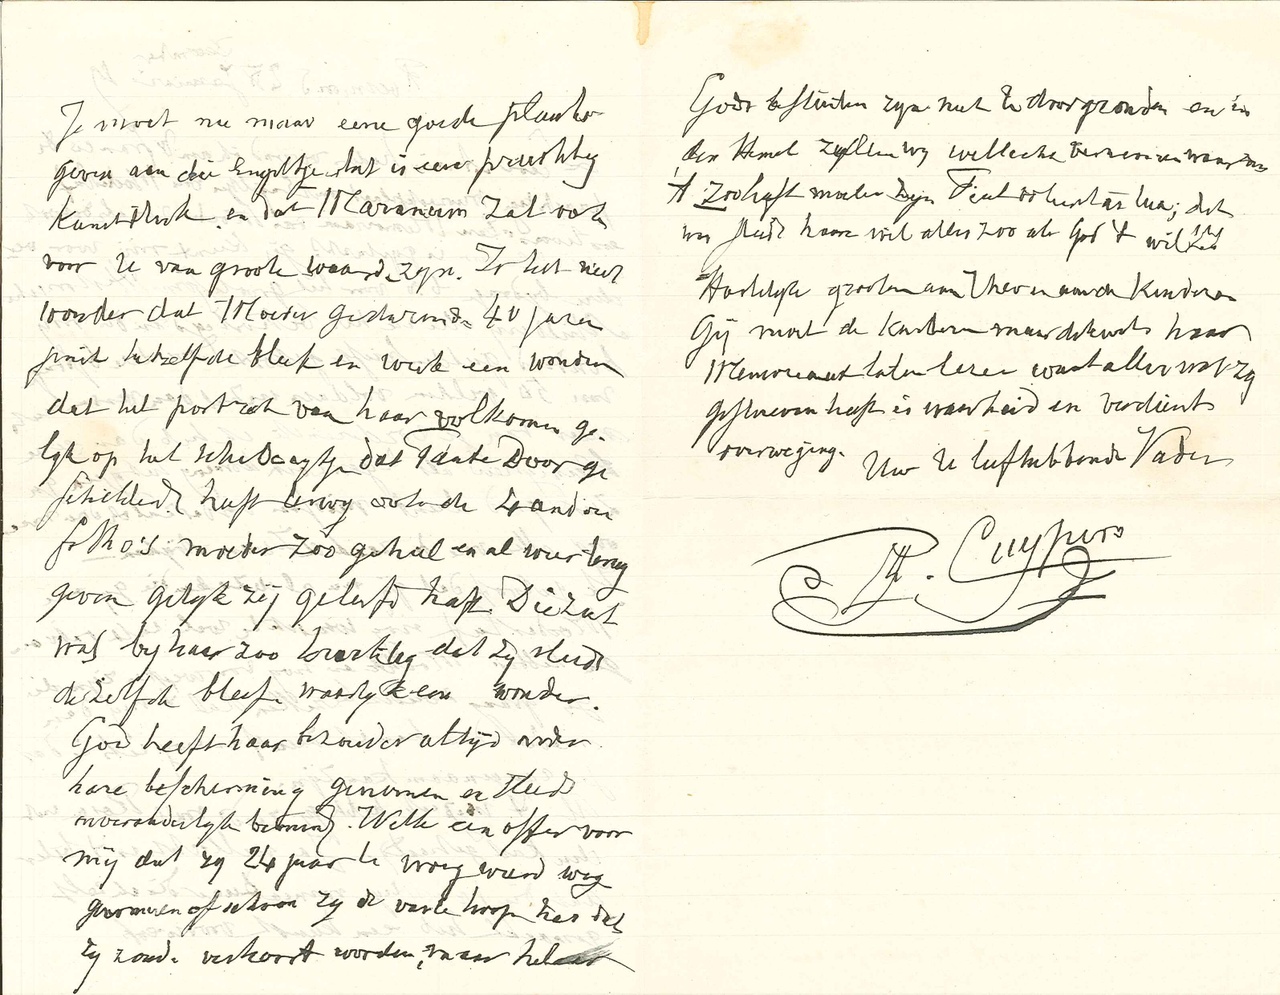 Je moet nu maar eene goede plaats
geven aan die Engeltje dat is een prachtig
Kunststuk en dat Marmeren zal ook
voor U van groote waarde zijn. Is het niet
wonder dat Moeder gedurende 40 jaren
juist hetzelfde bleef en werk een wonder
dat het portret van haar volkomen ge-
lijk op het schilderytje dat Tante Door ge
schilderd heeft en nog ook de 4 andere
foto's moeder zoo geheel en al weer terug
geven gelyk zij geleefd heeft. Die
was by haar zoo krachtig dat zy steeds
dezelfde bleef waarlijk een wonder.
God heeft haar byzonder altijd onder
hare bescherming genomen en steeds
onveranderlyk bemind. Welk een offer voor
mij dat zy 24 jaar te vroeg werd weg
genomen ofschoon zy de vaste hoop had dat
zy zoude verhoord worden, maar helaas
Gods besluiten zyn niet te doorgronden en in
den Hemel zullen wy wellicht vernemen waarom
't zoo heeft moeten zijn Fiat voluntas tua; dit
was steeds haar wil alles zoo als God 't wil
Hartelijke groeten aan Theo en aan de Kinderen
Gij moet de Kinderen maar dikwels haar
Memorieen laten lezen want alles wat zy
geschreven heeft is waarheid en verdient
overweging. Uw U liefhebbende Vader
P.J.H. Cuypers